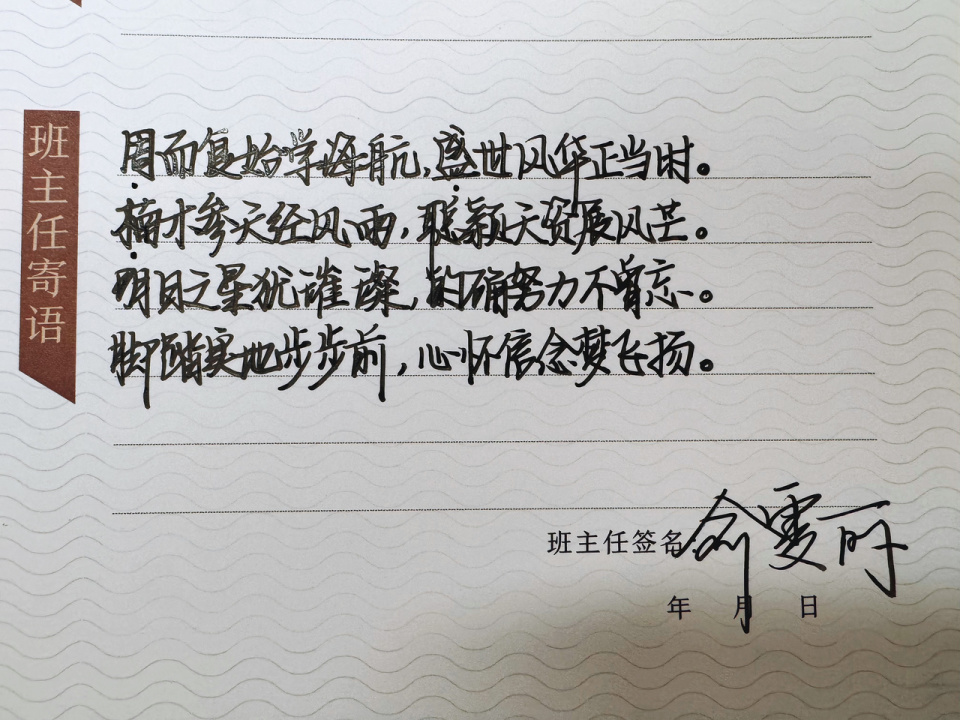 班主任寄语
周而复始学海航，盛世风华正当时。
楠木参天经风雨，聪颖天资展风芒。
明日之星犹璀璨，的确努力不曾忘。
脚踏实地步步前，心怀信念梦飞扬。
班主任签名
年 月 日